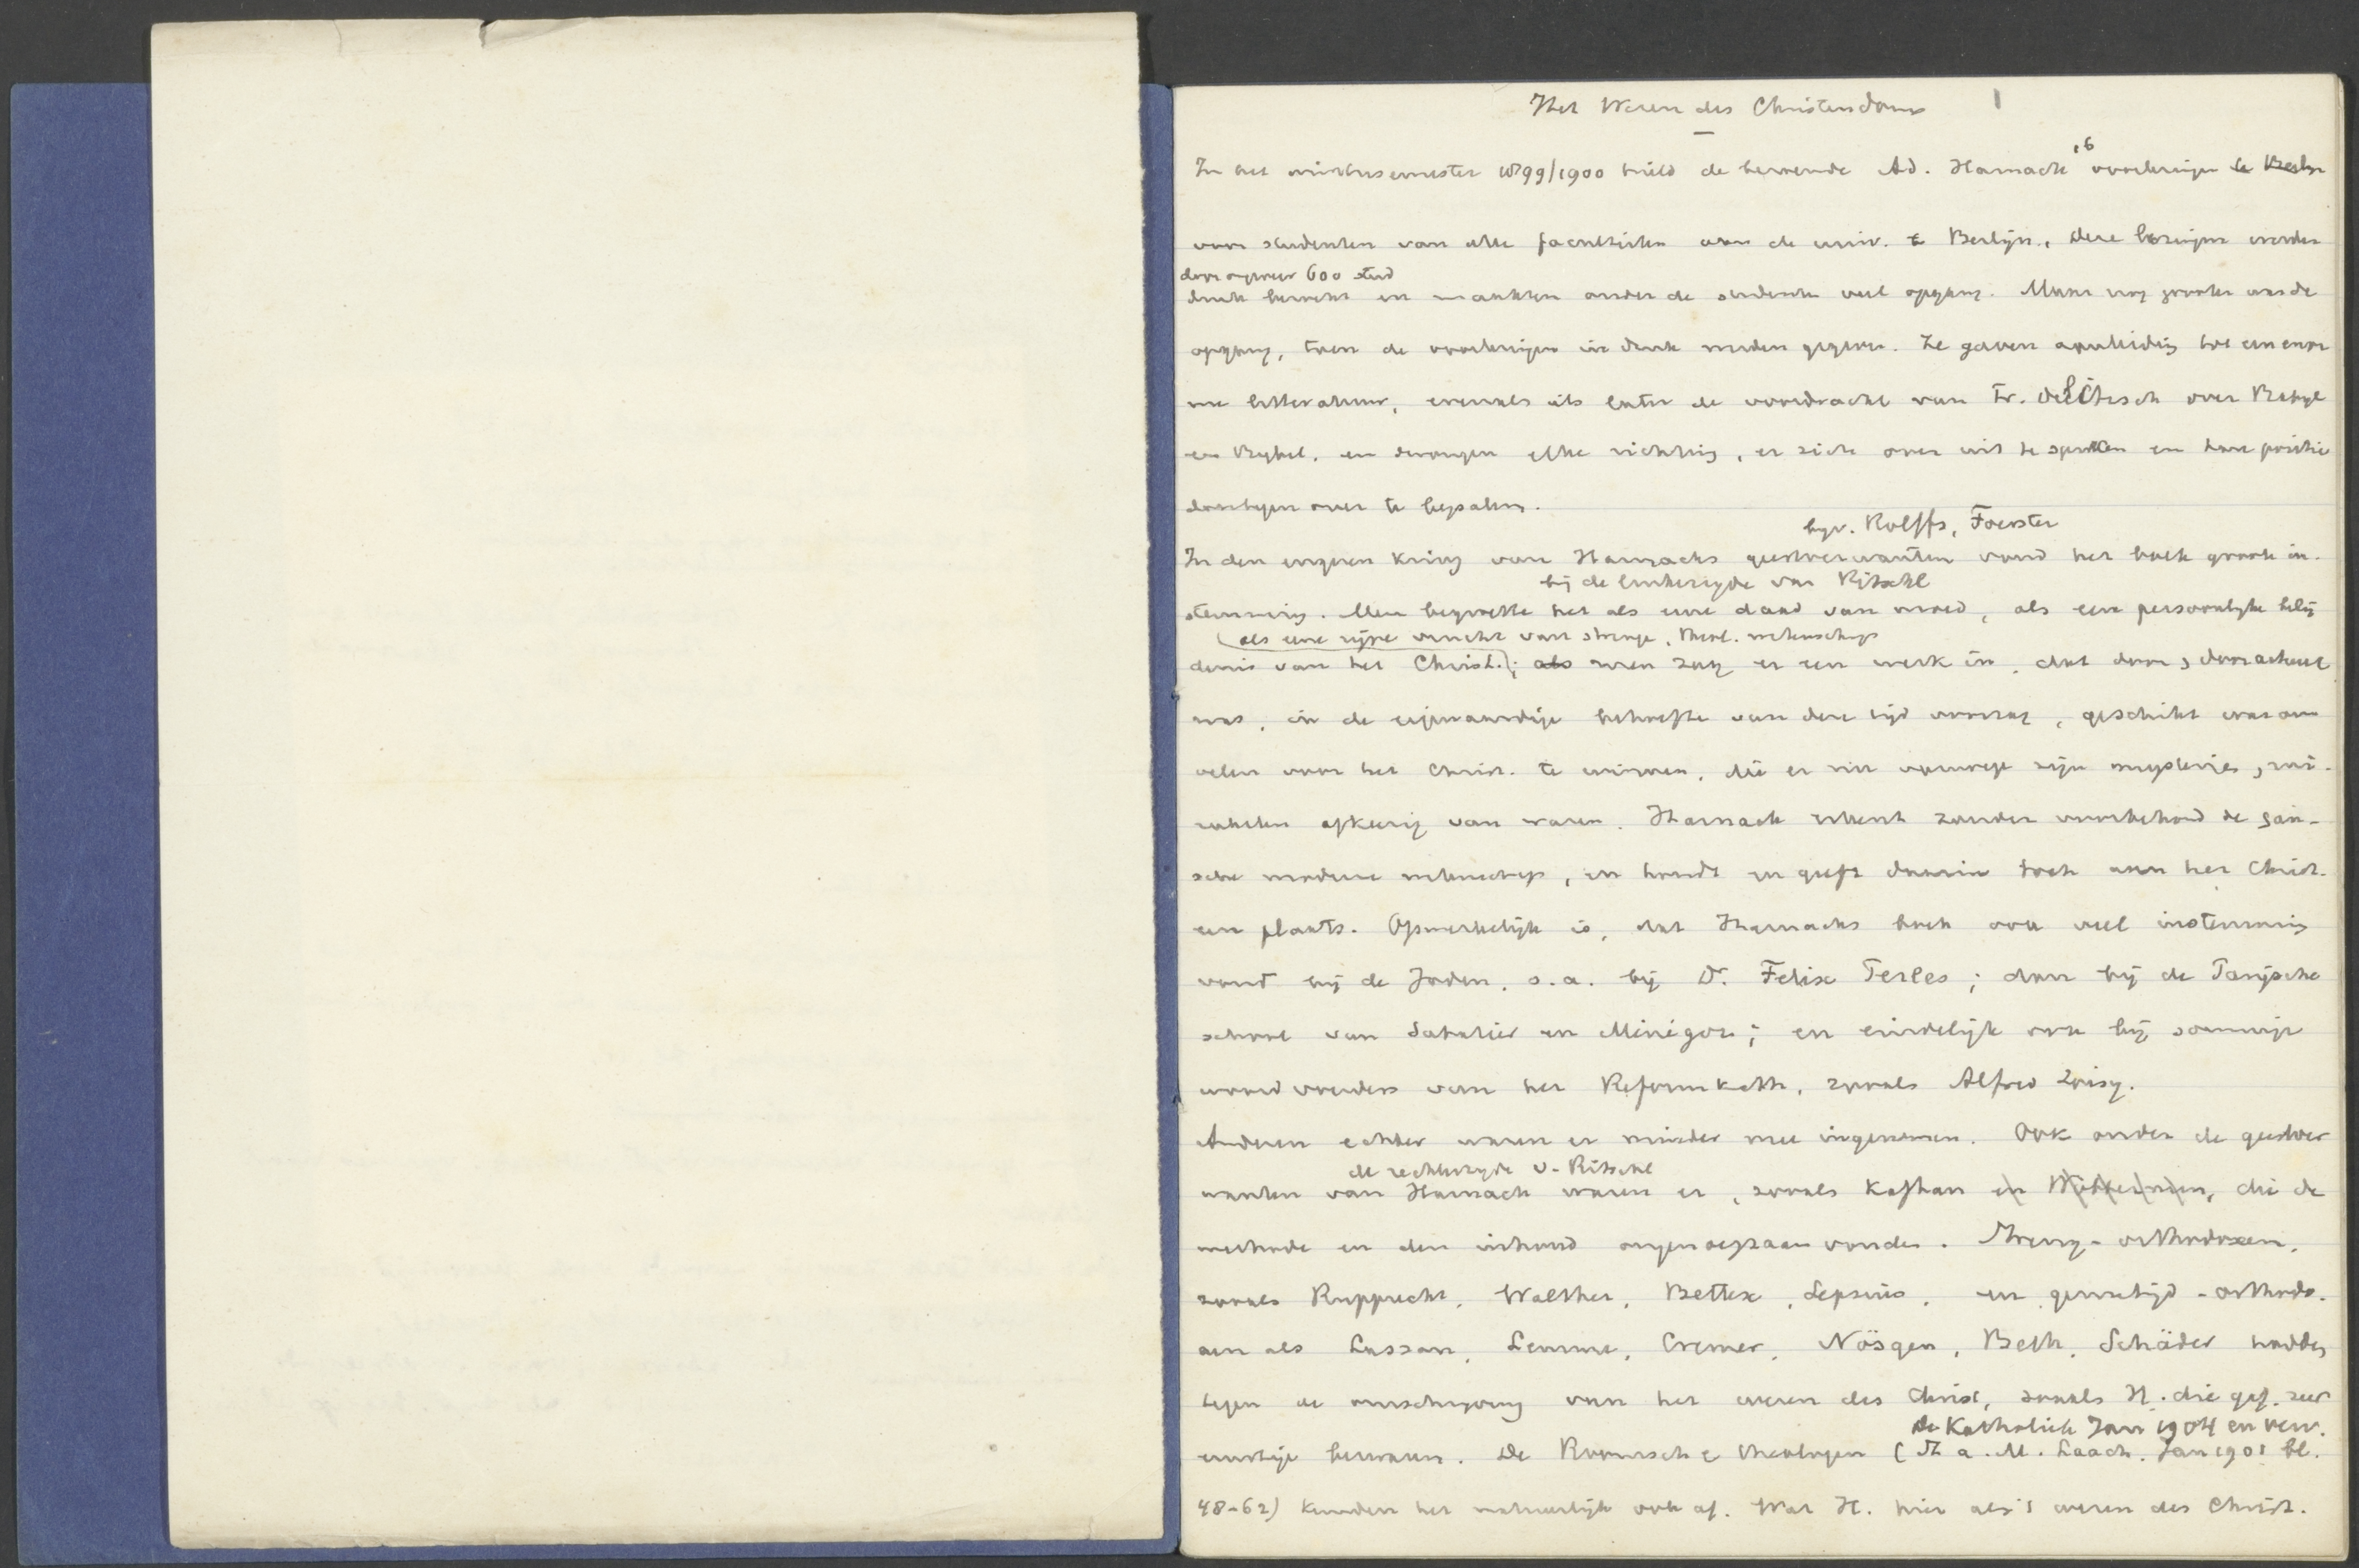 Het Wezen des Christendoms 1
In het wintersemester 1899/1900 hield de beroemde Ad. Harnack 16 voorlezingen te Berlijn
voor studenten van alle faculteiten aan de univ. te Berlijn. Deze lezingen werden
door ongeveer 600 stud
druk bezocht en maakten onder de studenten veel opgang. Maar nog grooter was de
opgang, toen de voorlezingen in druk werden gegeven. Ze gaven aanleiding tot een enor
me litteratuur, evenals als later de voordracht van Fr. Delitzsch over Babyl
en Bybel, en dwongen elke richting, er zich over uit te spreken en hare positie
daartegen over te bepalen.
bijv. Rolffs, Foerster
In den engeren kring van Harnacks geestverwanten vond het boek groote in-
bij de linkerzyde van Ritschl
stemming. Men begroette het als eene daad van moed, als een persoonlyke belij
als eene rijpe vrucht van strenge, theol. wetenschap
denis van het Christ.; als men zag er een werk in, dat door en door actueel
was, in de eigenaardige behoefte van deze tijd voorzag, geschikt was om
velen voor het Christ. te winnen, die er nu vanwege zijn mysteries, mi-
rakelen afkeerig van waren. Harnack erkent zonder voorbehoud de gan-
sche moderne wetenschap, en houdt en geeft daarin toch aan het Christ.
een plaats. Opmerkelijk is, dat Harnacks boek ook veel instemming
vond bij de Joden, o.a. bij Dr. Felix Perles; dan bij de Parijsche
school van Sabatier en Ménégoz; en eindelijk ook bij sommige
woordvoerders van het Reformkath. zooals Alfred Loisy.
Anderen echter waren er minder mee ingenomen. Ook onder de geestver
de rechterzyde v. Ritschl
wanten van Harnack waren er, zooals Kaftan en, die de
methode en den inhoud ongenoegzaam vonden. Streng-orthodoxen,
zooals Rupprecht, Walther, Bettex, Lepsius, en gematigd-orthodo-
xen als Lasson, Lemme, Cremer, Nösgen, Beth, Schäder hadden
tegen de omschrijving van het wezen des Christ, zooals H. die gaf, zeer
de Katholiek Jan 1904 en verv.
ernstige bezwaren. De Roomsche theologen (St a. M. Laach. Jan 1901 bl.
48-62) keurden het natuurlijk ook af. Wat H. hier als 't wezen des Christ.